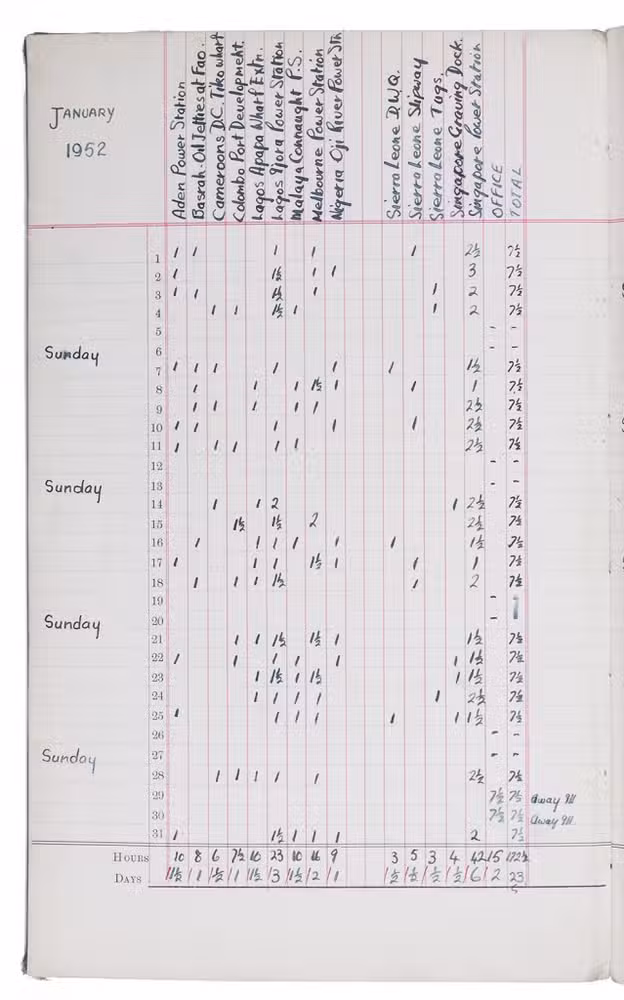 JANUARY
1952
Aden Power Station
Basrah. Oil Jetties at Fao.
Cameroons D.C. Tiko wharf
Colombo Port Development.
Lagos Apapa Wharf Extn.
Lagos Ijora Power Station
Malaya Connaught P.S.
Melbourne Power Station
Nigeria Oji River Power Stn
Sierra Leone D.W.Q.
Sierra Leone Slipway
Sierra Leone Tugs.
Singapore Graving Dock.
Singapore Power Station
OFFICE
TOTAL
1 1 1 1 1 1 2½ 7½
2 1 1½ 1 1 3 7½
3 1 1 1½ 1 1 2 7½
4 1 1 1½ 1 1 2 7½
5 - -
Sunday 6 - -
7 1 1 1 1 1 1 1½ 7½
8 1 1 1 1½ 1 1 1 7½
9 1 1 1 1 1 2½ 7½
10 1 1 1 1 1 2½ 7½
11 1 1 1 1 1 2½ 7½
12 - -
Sunday 13 - -
14 1 1 2 1 2½ 7½
15 1½ 1½ 2 2½ 7½
16 1 1 1 1 1 1 1½ 7½
17 1 1 1 1½ 1 1 1 7½
18 1 1 1 1½ 1 2 7½
19 -
Sunday 20 -
21 1 1 1½ 1½ 1 1½ 7½
22 1 1 1 1 1 1 1½ 7½
23 1 1½ 1 1½ 1 1½ 7½
24 1 1 1 1 1 2½ 7½
25 1 1 1 1 1 1 1½ 7½
26 - -
Sunday 27 - -
28 1 1 1 1 1 2½ 7½
29 7½ 7½ Away Ill
30 7½ 7½ Away Ill.
31 1 1½ 1 1 1 2 7½
HOURS 10 8 6 7½ 10 23 10 16 9 3 5 3 4 42 15 172½
DAYS 1½ 1 ½ 1 1½ 3 1½ 2 1 ½ ½ ½ ½ 6 2 23